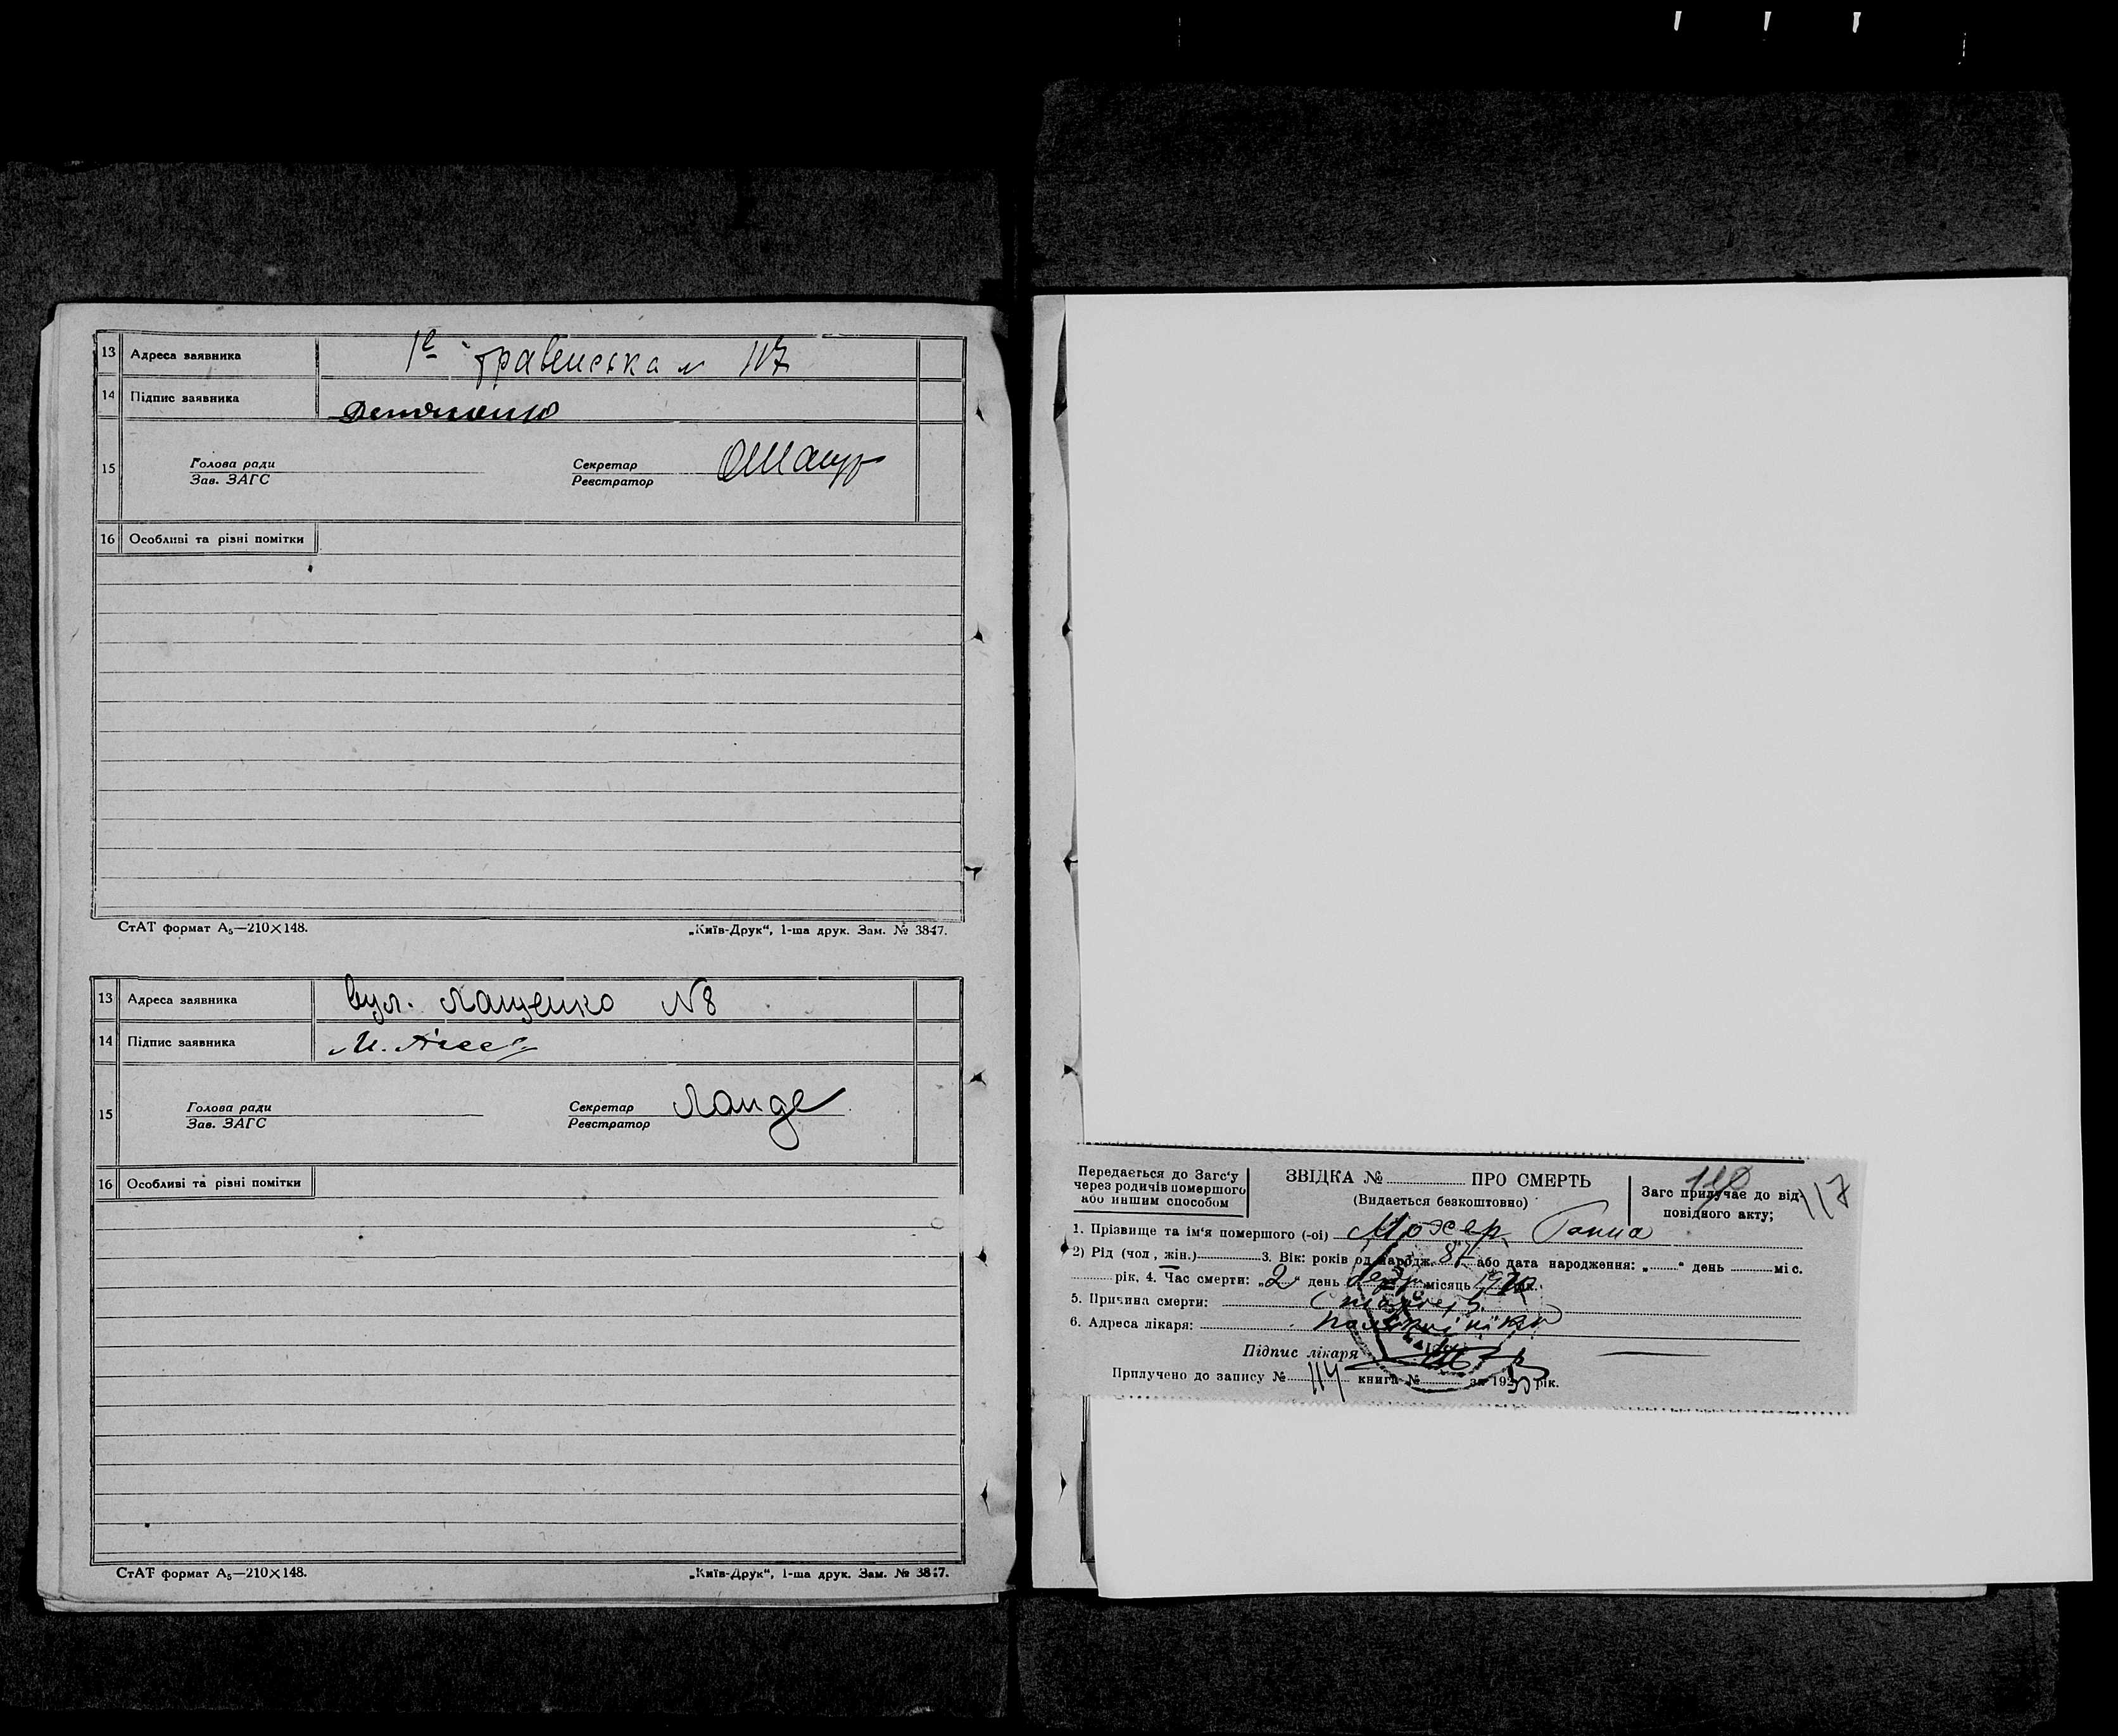 13 Адреса заявника 1е травенська № 117
14 Підпис заявника
15 Голова ради Секретар
Зав. ЗАГС Реєстратор
16 Особливі та різні помітки
СтАТ формат А5—210×148. „Київ-Друк“, 1-ша друк. Зам. № 3847.
13 Адреса заявника вул. Лащенко №8
14 Підпис заявника М.
15 Голова ради Секретар Ланде
Зав. ЗАГС Реєстратор
16 Особливі та різні помітки
СтАТ формат А5—210×148. „Київ-Друк“, 1-ша друк. Зам. № 3847.
Передається до Загс‘у
через родичів помершого
або иншим способом
ЗВІДКА № ПРО СМЕРТЬ
(Видається безкоштовно)
Загс прилучає до від-
повідного акту;
117
1. Прізвище та ім‘я помершого (-ої) Мохер Ганна
2) Рід (чол, жін.) 3. Вік: років од народж. 87 або дата народження: „ “ день міс.
рік, 4. Час смерти: „2“ день місяць
5. Причина смерти: старість
6. Адреса лікаря: поліклініка
Підпис лікаря
Прилучено до запису № 114 книга № за 192 рік.